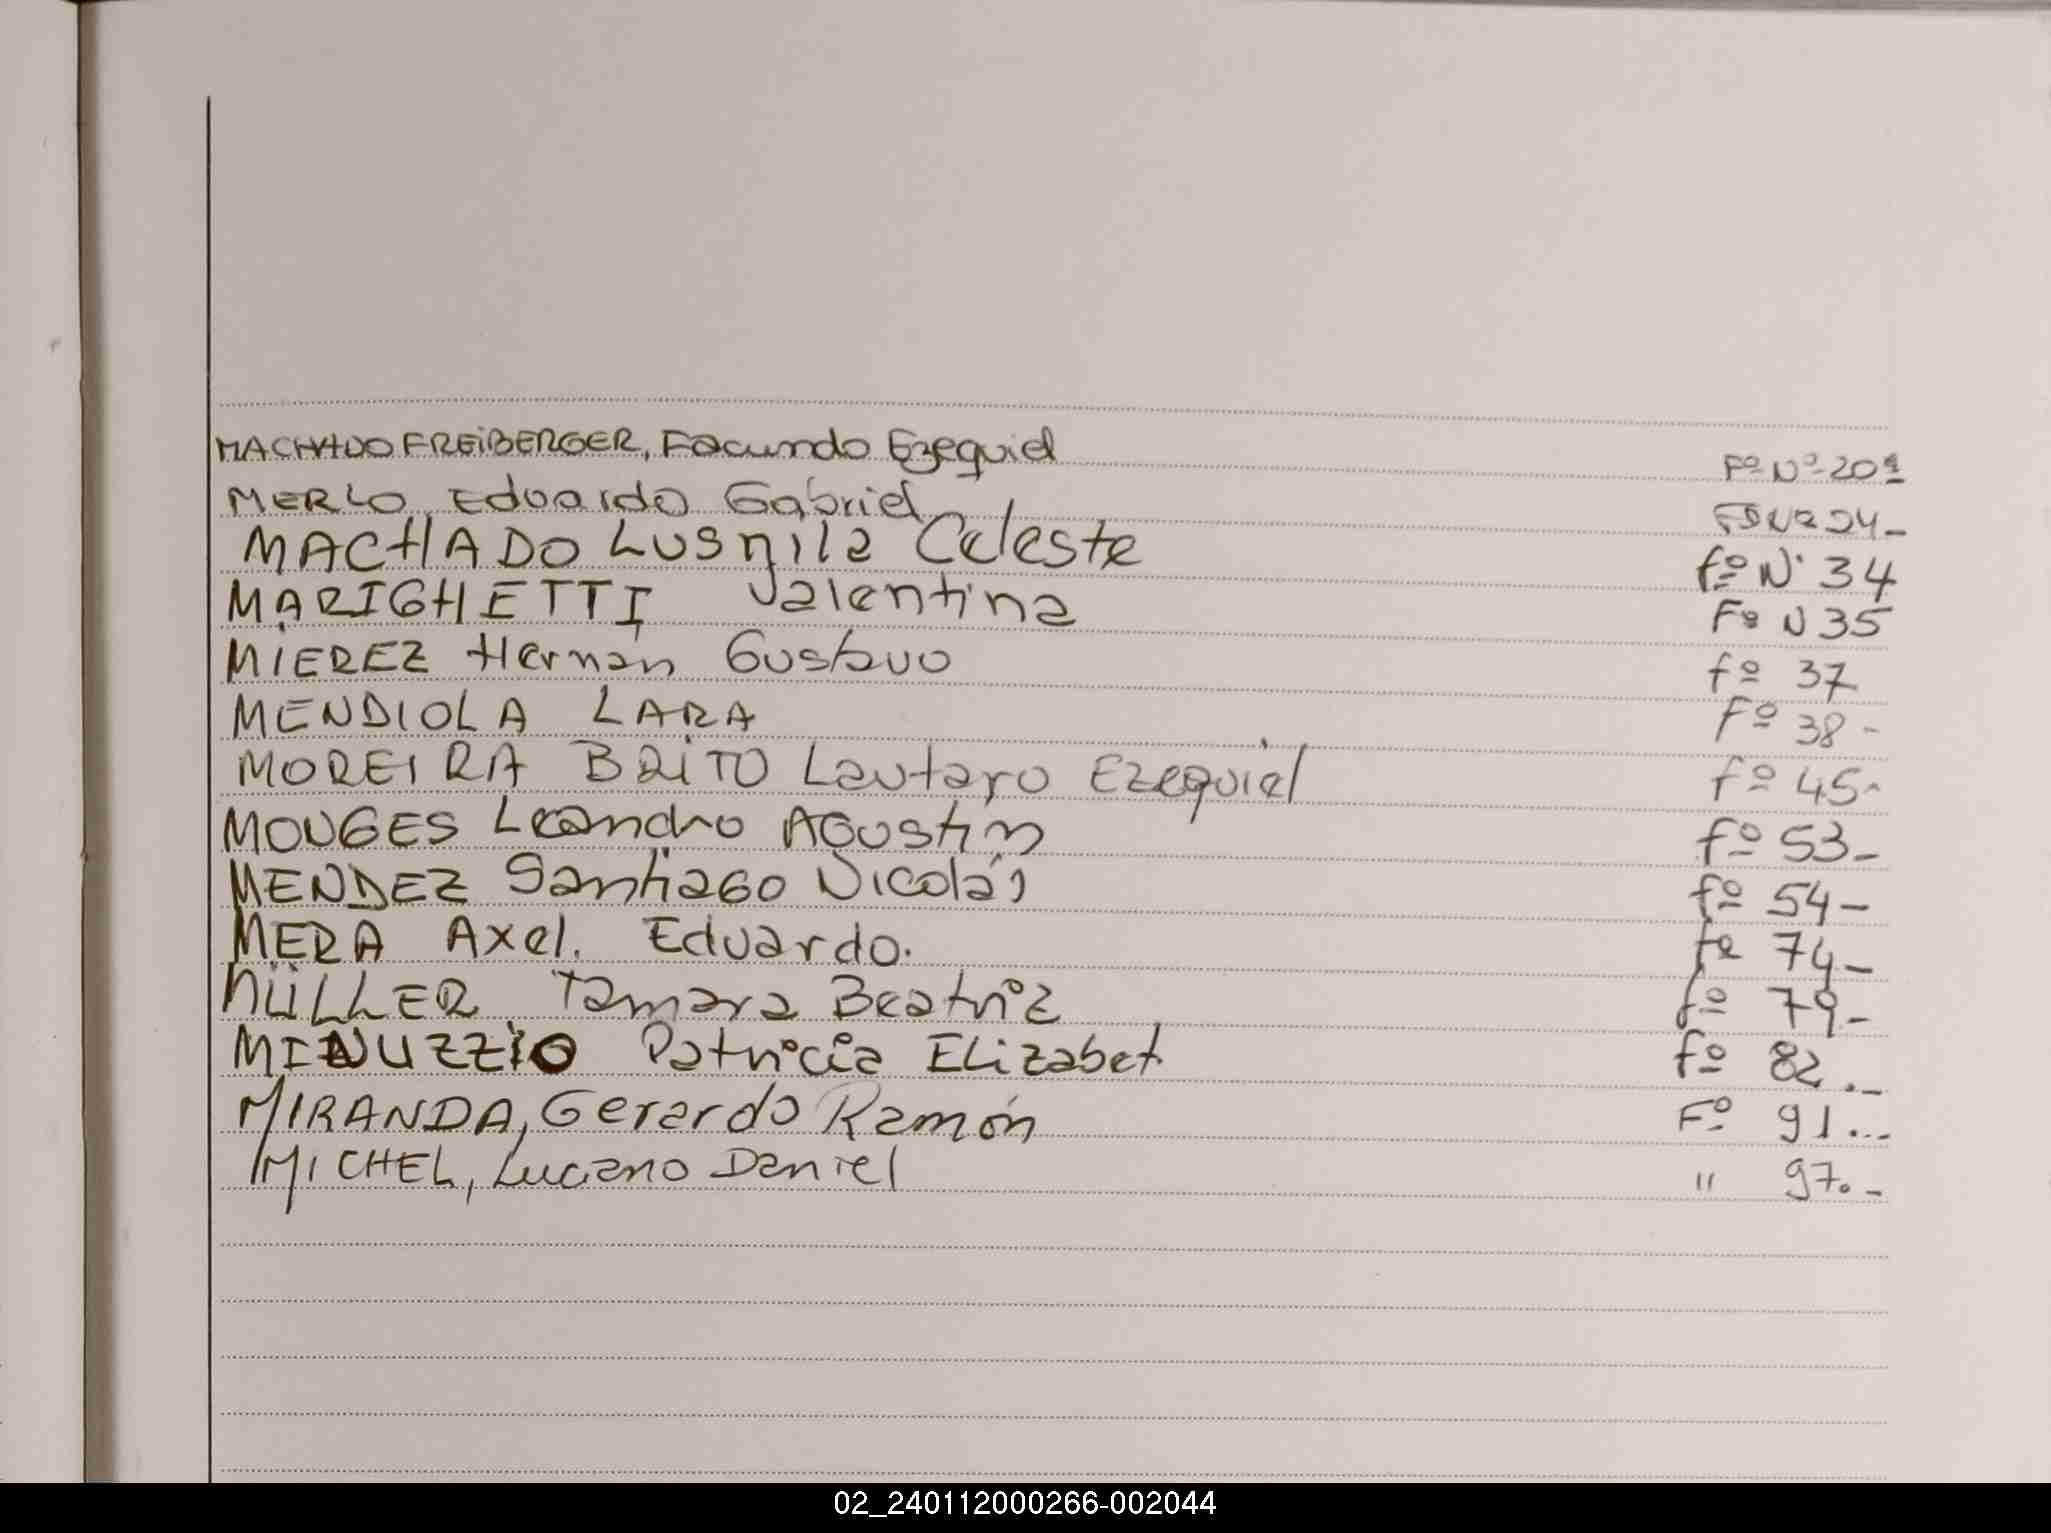 MACHADO FREIBERGER, Facundo Ezequiel Fº Nº 20
MERLO, Eduardo Gabriel Fº Nº 24-
MACHADO Lusmila Celeste fº Nº 34
MARIGHETTI Valentina Fº N 35
MIEREZ Hernan Gustavo fº 37
MENDIOLA LARA Fº 38-
MOREIRA BRITO Lautaro Ezequiel fº 45-
MOUGES Leandro Agustin fº 53-
MENDEZ Santiago Nicolás fº 54-
MERA Axel. Eduardo. fº 74-
MÜLLER Tamara Beatriz fº 79-
MINUZZIO Patricia Elizabet fº 82.-
MIRANDA, Gerardo Ramón Fº 91...
MICHEL, Luciano Daniel " 97.-
02_240112000266-002044